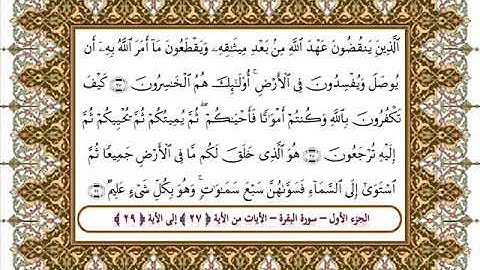 ٱلَّذِينَ يَنقُضُونَ عَهْدَ ٱللَّهِ مِنۢ بَعْدِ مِيثَٰقِهِۦ وَيَقْطَعُونَ مَآ أَمَرَ ٱللَّهُ بِهِۦٓ أَن
يُوصَلَ وَيُفْسِدُونَ فِى ٱلْأَرْضِ ۚ أُو۟لَٰٓئِكَ هُمُ ٱلْخَٰسِرُونَ ۝٢٧ كَيْفَ
تَكْفُرُونَ بِٱللَّهِ وَكُنتُمْ أَمْوَٰتًا فَأَحْيَٰكُمْ ۖ ثُمَّ يُمِيتُكُمْ ثُمَّ يُحْيِيكُمْ ثُمَّ
إِلَيْهِ تُرْجَعُونَ ۝٢٨ هُوَ ٱلَّذِى خَلَقَ لَكُم مَّا فِى ٱلْأَرْضِ جَمِيعًا ثُمَّ
ٱسْتَوَىٰٓ إِلَى ٱلسَّمَآءِ فَسَوَّىٰهُنَّ سَبْعَ سَمَٰوَٰتٍ ۚ وَهُوَ بِكُلِّ شَىْءٍ عَلِيمٌ ۝٢٩
الجزء الأول – سورة البقرة – الآيات من الآية ﴿ ٢٧ ﴾ إلى الآية ﴿ ٢٩ ﴾